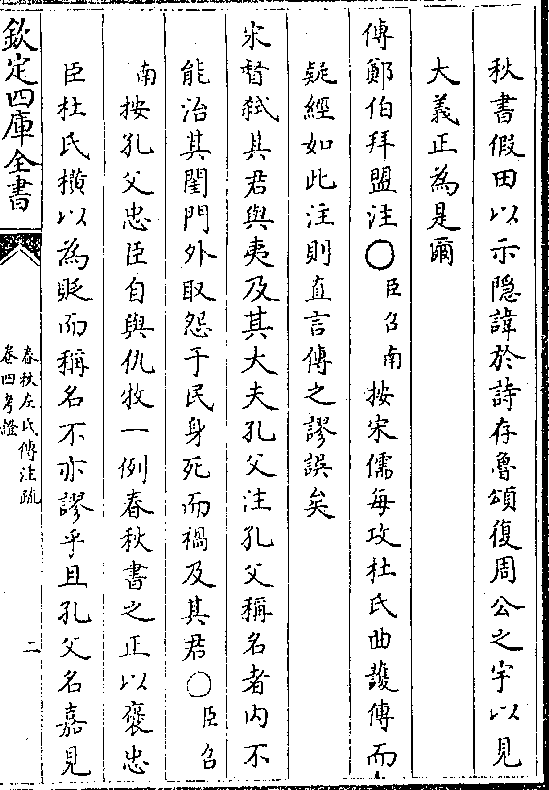 秋書假田以示隱諱於詩存魯頌復周公之宇以見
大義正為是爾
傳鄭伯拜盟注〇臣召南按宋儒每攻杜氏曲護傳而
疑經如此注則直言傳之謬誤矣
宋督弒其君與夷及其大夫孔父注孔父稱名者内不
能治其閨門外取怨于民身死而禍及其君〇臣召
南按孔父忠臣自與仇牧一例春秋書之正以褒忠
臣杜氏横以為貶而稱名不亦謬乎且孔父名嘉見
欽定四庫全書
春秋左氏傳注疏
卷四考證
二